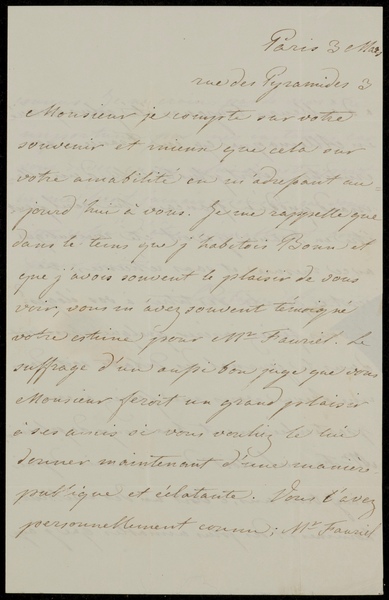 Paris 3 Mars
rue des Pyramides 3
Monsieur je compte sur votre
souvenir et mieux que cela sur
votre amabilité en m'adressant au
jourd'hui à vous. Je me rappelle que
dans le tems que j'habitois Bonn et
que j'avois souvent le plaisir de vous
voir, vous m'avez souvent témoigné
votre estime pour Mr Fauriel. Le
suffrage d'un aussi bon juge que vous
Monsieur feroit un grand plaisir
à ses amis si vous vouliez le lui
donner maintenant d'une manière
publique et éclatante. Vous l'avez
personnellement connu; Mr Fauriel